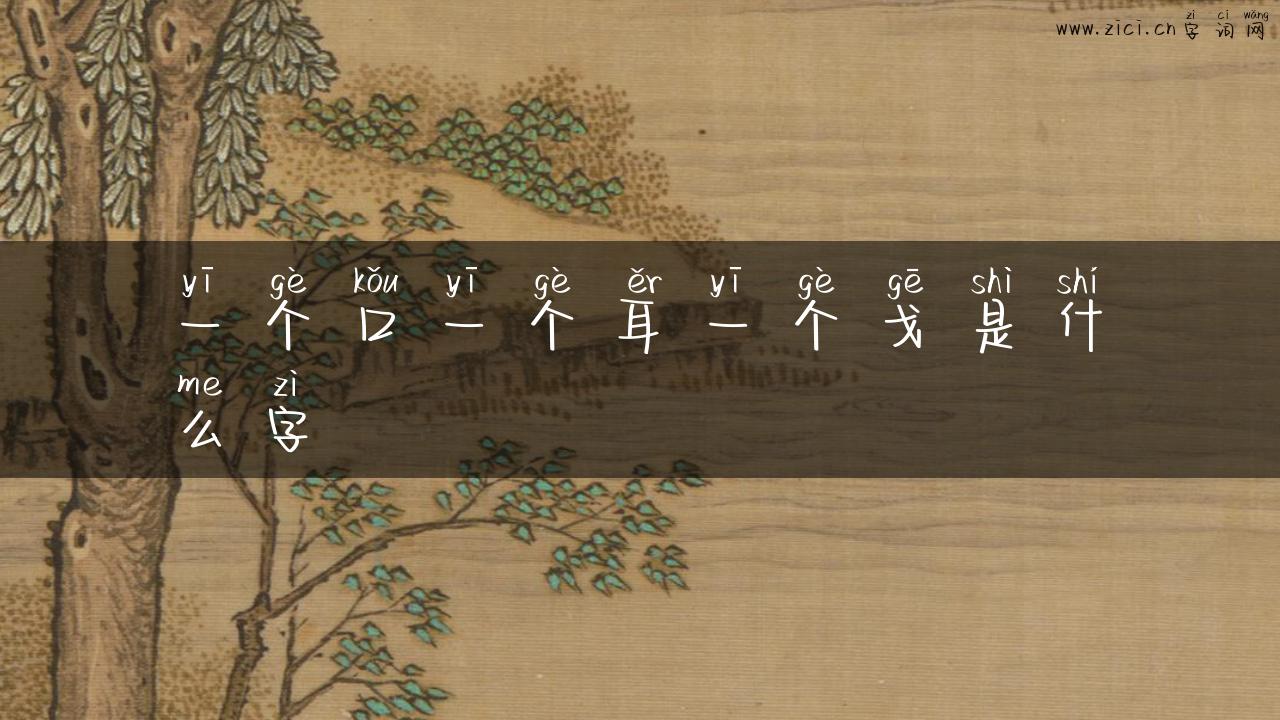 zì cí wǎng
www.zici.cn 字 词 网
yī gè kǒu yī gè ěr yī gè gē shì shí
一 个 口 一 个 耳 一 个 戈 是 什
me zì
么 字